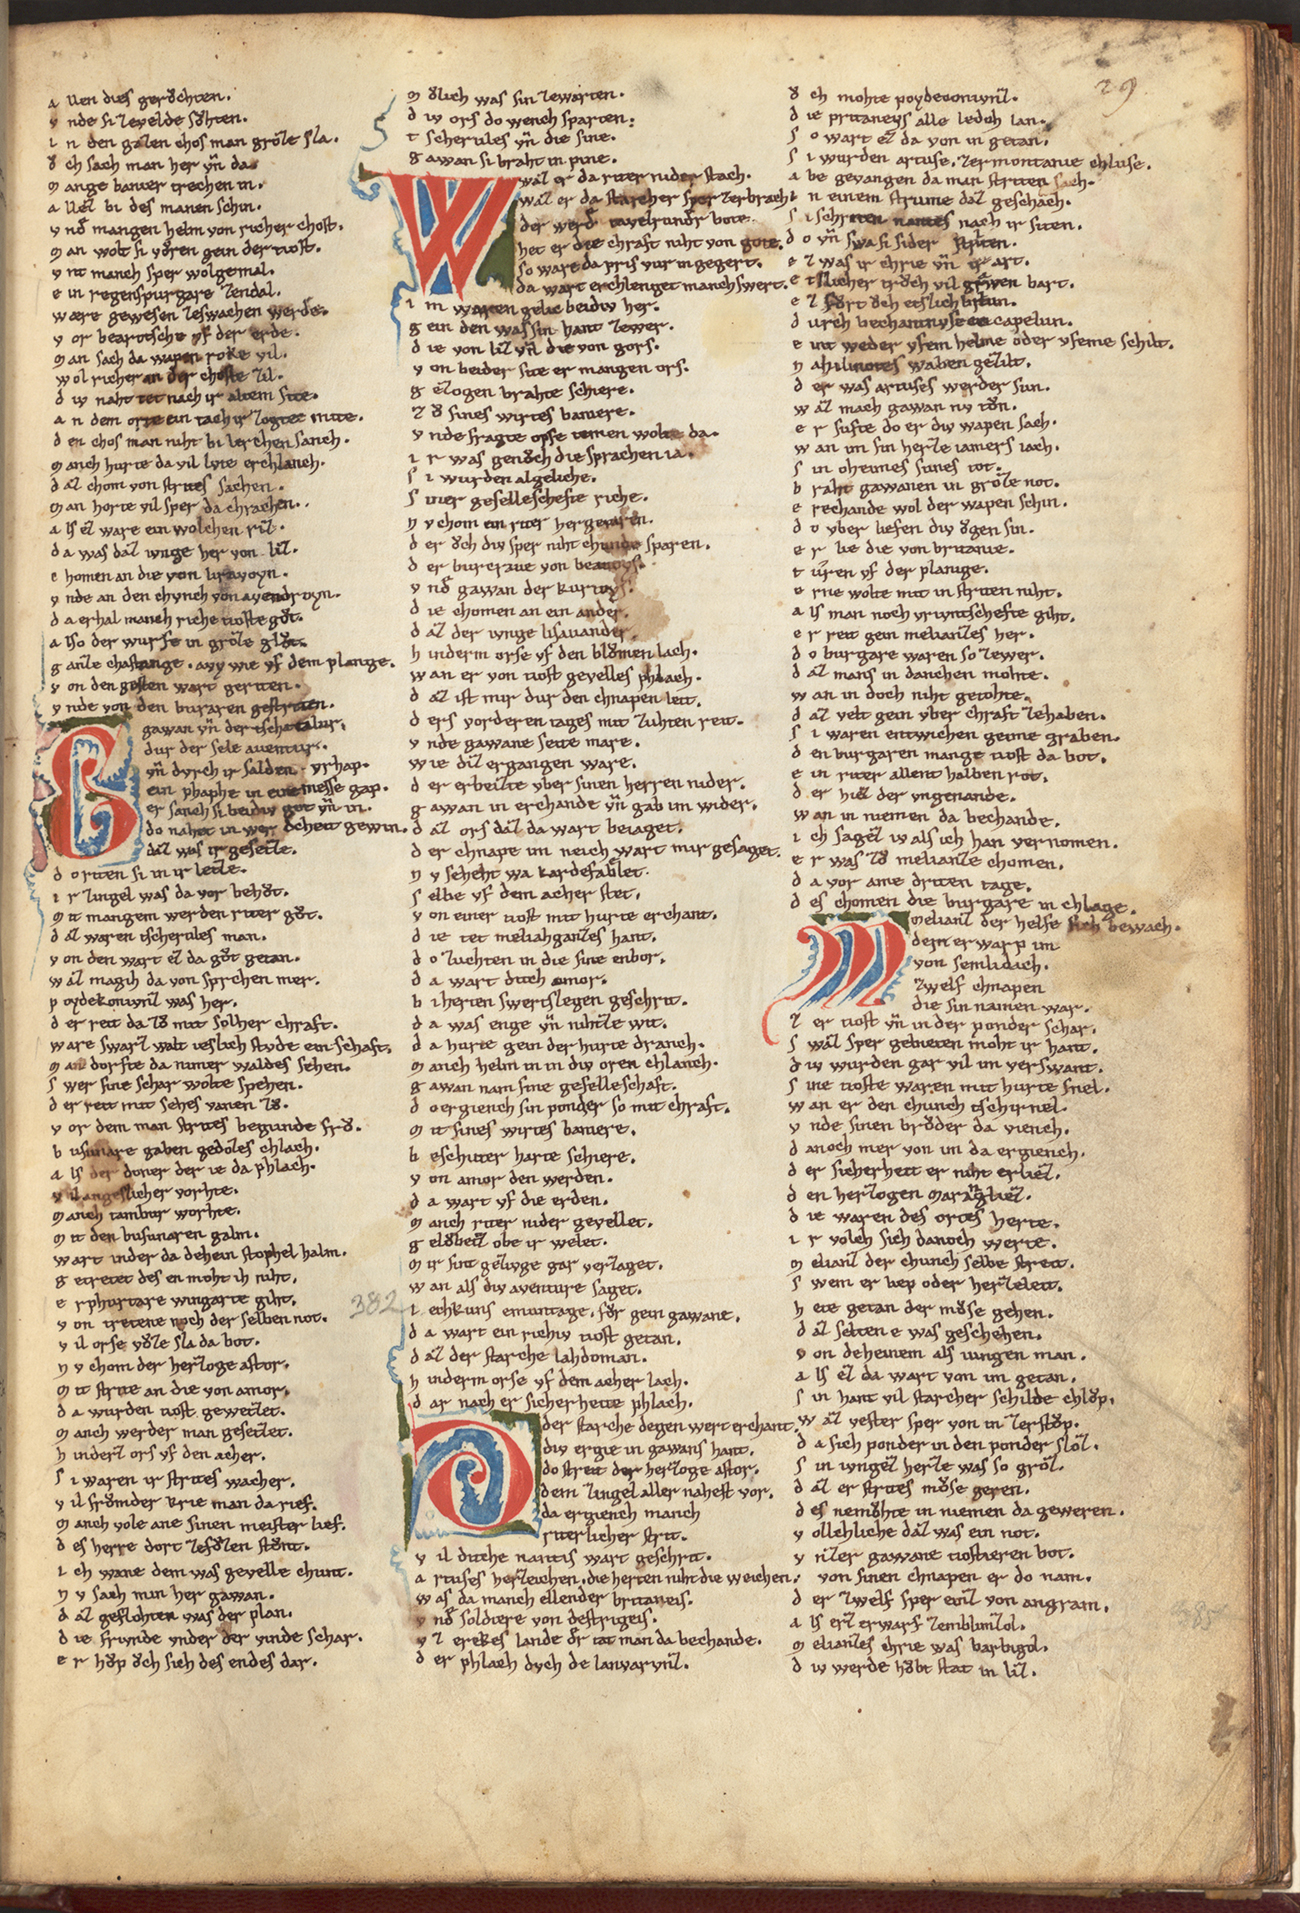 a llen dies gerůchten.
v nde si ze velde sůhten.
i n den gazen chos man groze sla.
ů ch sach man her vn̄ da
m ange banier trechen in.
a llez bi des manen schin.
v nd̄ mangen helm von richer chost.
m an wolt si vůren gein der tiost.
v nt manch sper wolgemal.
e in regenspurgare zendal.
wære gewesen ze swachem werde.
v or beartsche vf der erde.
m an sach da wapen roke vil.
wol richer an der choste zil.
d iv naht tet nach ir altem site.
a n dem orte ein tach ir zogtee mite.
d en chos man niht bi lerchen sanch.
m anch hurte da vil lvte erchlanch.
d az chom von strites sachen.
m an horte vil sper da chrachen.
a ls ez ware ein wolchen riz.
d a was daz ivnge her von liz.
e homen an die von liravoyn.
v nde an den chvnch von avendroyn.
d a erhal manch riche tioste gůt.
a lso der wurfe in groze glůt.
g anze chastange. avy wie vf dem planige.
v on den gesten wart geriten.
v nde von den buraren gestriten.
gawan vn̄ der tschatalur.
dur der sele aventur.
vn̄ dvrch ir salden vrhap.
ein phaphe in eine messe gap.
er sanch si beidiv got vn̄ in.
do nahet in wer dcheit gewin.
daz was ir gesetze.
d o riten si in ir letze.
i r zingel was da vor behůt.
m it mangem werden riter gůt.
d az waren tscherules man.
v on den wart ez da gůt getan.
w az magih da von sprchen mer.
p oydekonvnz was her.
d er reit da zů mit solher chraft.
ware swarz walt ieslich stvde ein schaft.
m an dorfte da nimer waldes sehen.
s wer sine schar wolte spehen.
d er reit mit sehes vanen zů.
v or dem man strites begunde frů.
b usunare gaben gedoles chlach.
a ls der doner der ie da phlach.
v il angeslicher vorhte.
m anch tambur worhte.
m it den busunaren galm.
wart inder da dehein stophel halm.
g etretet des en moht ih niht.
e rphurtare wingarte giht.
v on tretene noch der selben not.
v il orse vůle sla da bot.
n v chom der herzoge astor.
m it strite an die von amor.
d a wurden tiost gewetzet.
m anch werder man gesetzet.
h inderz ors vf den acher.
s i waren ir strites wacher.
v il frůmder krie man da rief.
m anch vole ane sinen meister lief.
d es herre dort ze fůzen stůnt.
i ch wane dem was gevelle chunt.
n v sach min her gawan.
d az geflohten was der plan.
d ie friunde vnder der vinde schar.
e r hůp ůch sich des endes dar.
m ůlich was sin zewarten.
d iv ors do wench sparten.
t scherules vn̄ die sine.
g awan si braht in pine.
waz er da riter nider stach.
waz er da starcher sper zerbrach.
der werd̄ tavelrundr̄ bote.
het er die chraft niht von gote.
so ware da pris vur in gegert.
da wart erchlenget manch swert.
i m waren gelic beidiv her.
g ein den was sin hant zewer.
d ie von liz vn̄ die von gors.
v on beider site er mangen ors.
g ezogen brahte schiere.
z ů sines wirtes baniere.
v nde fragte opse iemen wolte da.
i r was genůch die sprachen ia.
s i wurden algeliche.
s iner geselleschefte riche.
n v chom ein riter hergevaren.
d er ůch div sper niht chunde sparen.
d er burcrave von beavoys.
v nd̄ gawan der kurtoys.
d ie chomen an ein ander.
d az der ivnge lisavander.
h inderm orse vf den blůmen lach.
w an er von tiost gevelles phlach.
d az ist mir dur den chnapen leit.
d ers vorderen tages mit zuhten reit.
v nde gawane seite mare.
w ie diz ergangen ware.
d er erbeizte vber sinen herren nider.
g awan in erchande vn̄ gab im wider.
d az ors daz da wart beiaget.
d er chnape im neich wart mir gesaget.
n v seheht wa kardefablet.
s elbe vf dem acher stet.
v on einer tiost mit hurte erchant.
d ie tet meliahganzes hant.
d o zuchten in die sine enbor.
d a wart dich amor.
b i herten swertslegen geschrit.
d a was enge vn̄ nihtze wit.
d a hurte gein der hurte dranch.
m anch helm in in div oren chlanch.
g awan nam sine geselleschaft.
d o ergiench sin ponder so mit chraft.
m it sines wirtes baniere.
b eschutter harte schiere.
v on amor den werden.
d a wart vf die erden.
m anch riter nider gevellet.
g elůbetz obe ir welet.
m ir sint gezivge gar verzaget.
w an als div aventure saget.
i echkuns emuntage. fůr gein gawane.
d a wart ein richiv tiost getan.
d az der starche lahdoman.
h inderm orse vf dem acher lach.
d ar nach er sicherheite phlach.
der starche degen wert erchant.
div ergie in gawans hant.
do streit der herzoge astor.
dem zingel aller nahest vor.
da ergiench manch
riterlicher strit.
v il diche nantis wart geschrit.
a rtuses herzeichen. die herten niht die weichen.
w as da manch ellender britaneis.
v nd̄ soldiere von destrigeis.
v z erekes lande dr̄ tat man da bechande.
d er phlach dvch de lanvarvnz.
ů ch mohte poydeconivnz.
d ie pritaneys alle ledch lan.
s o wart ez da von in getan.
s i wurden artuse. zermontanie chluse.
a be gevangen da man striten sach.
i n einem strume daz geschach.
s i schriten nantes nach ir siten.
d o vn̄ swa si sider striten.
e z was ir chrie vn̄ ir art.
e tslicher trůch vil graven bart.
e z fůrt ůch etslich britun.
d urch bechantnysse ein capelun.
e int weder vfem helme oder vfeme schilt.
n ah ilinotes waben gezilt.
d er was artuses werder sun.
w az mach gawan nv tůn.
e r sufte do er div wapen sach.
w an im sin herze iamers iach.
s in oheimes sunes tot.
b raht gawanen in groze not.
e rechande wol der wapen schin.
d o vber liefen div ůgen sin.
e r lie die von britanie.
t uren vf der planige.
e rne wolte mit in striten niht.
a ls man noch vriuntschefte giht.
e r reit gein melianzes her.
d o burgare waren so zewer.
d az mans in danchen mohte.
w an in doch niht getohte.
d az velt gein vber chraft zehaben.
s i waren entwichen geime graben.
d en burgaren mange tiost da bot.
e in riter allent halben rot.
d er hiez der vngenande.
w an in niemen da bechande.
i ch sagez iv als ich han vernomen.
e r was zů melianze chomen.
d a vor ame driten tage.
d es chomen die burgare in chlage.
melianz der helfe sich bewach.
dem er warp im
von semlidach.
zwelf chnapen
die sin namen war.
z er tiost vn̄ in der ponder schar.
s waz sper gebieten moht ir hant.
d iv wurden gar vil im verswant.
s ine tioste waren mit hurte snel.
w an er den chunch tschirnel.
v nde sinen brůder da viench.
d anoch mer von im da ergiench.
d er sicherheit er niht erliez.
d en herzogen marangliez.
d ie waren des ortes herte.
i r volch sich danoch werte.
m elianz der chunch selbe streit.
s wem er liep oder herzeleit.
h ete getan der můse gehen.
d az selten e was geschehen.
v on deheinem als iungen man.
a ls ez da wart von im getan.
s in hant vil starcher schilde chlůp.
w az vester sper von in zerstůp.
d a sich ponder in den ponder slůz.
s in ivngez herze was so groz.
d az er strites můse geren.
d es nemůhte in niemen da geweren.
v ollehliche daz was ein not.
v nzer gawane tiostieren bot.
v on sinen chnapen er do nam.
d er zwelf sper einz von angram.
a ls erz erwarf zemblimzol.
m elianzes chrie was barbigol.
d iv werde hůbt stat in liz.
29
382